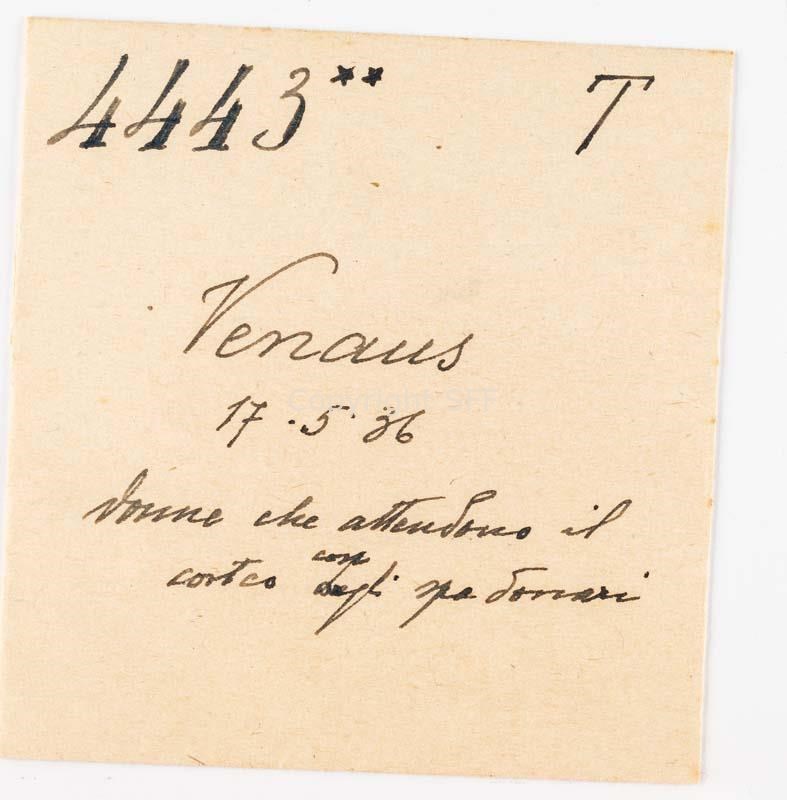 4443** T
Venaus
17.5.36
donne che attendono il
con
corteo degli spadonari
Copyright SFF